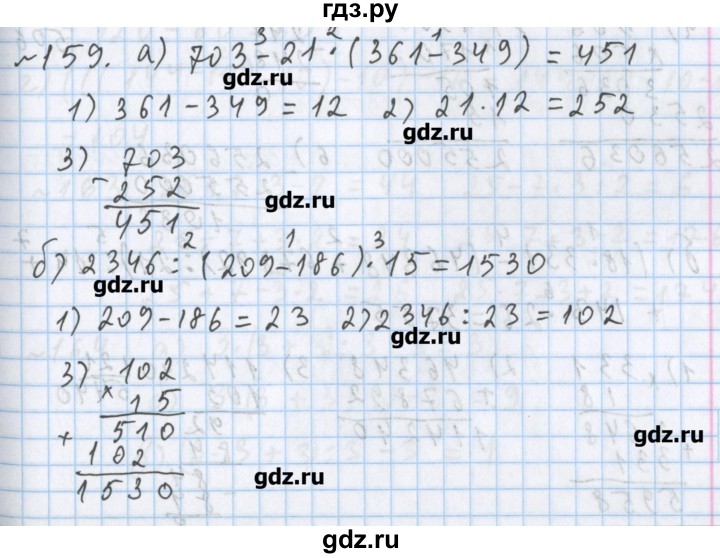 гдз.ру
№159. а) 703 - 21 · (361 - 349) = 451
3 2 1
gdz.ru
1) 361 - 349 = 12 2) 21 · 12 = 252
gdz.ru
3) 703
- 252
451
gdz.ru
2 1 3
б) 2346 : (209 - 186) · 15 = 1530
gdz.ru
1) 209 - 186 = 23 2) 2346 : 23 = 102
gdz.ru
3) 102
× 15
510
gdz.ru
+ 102
1530
gdz.ru
gdz.ru